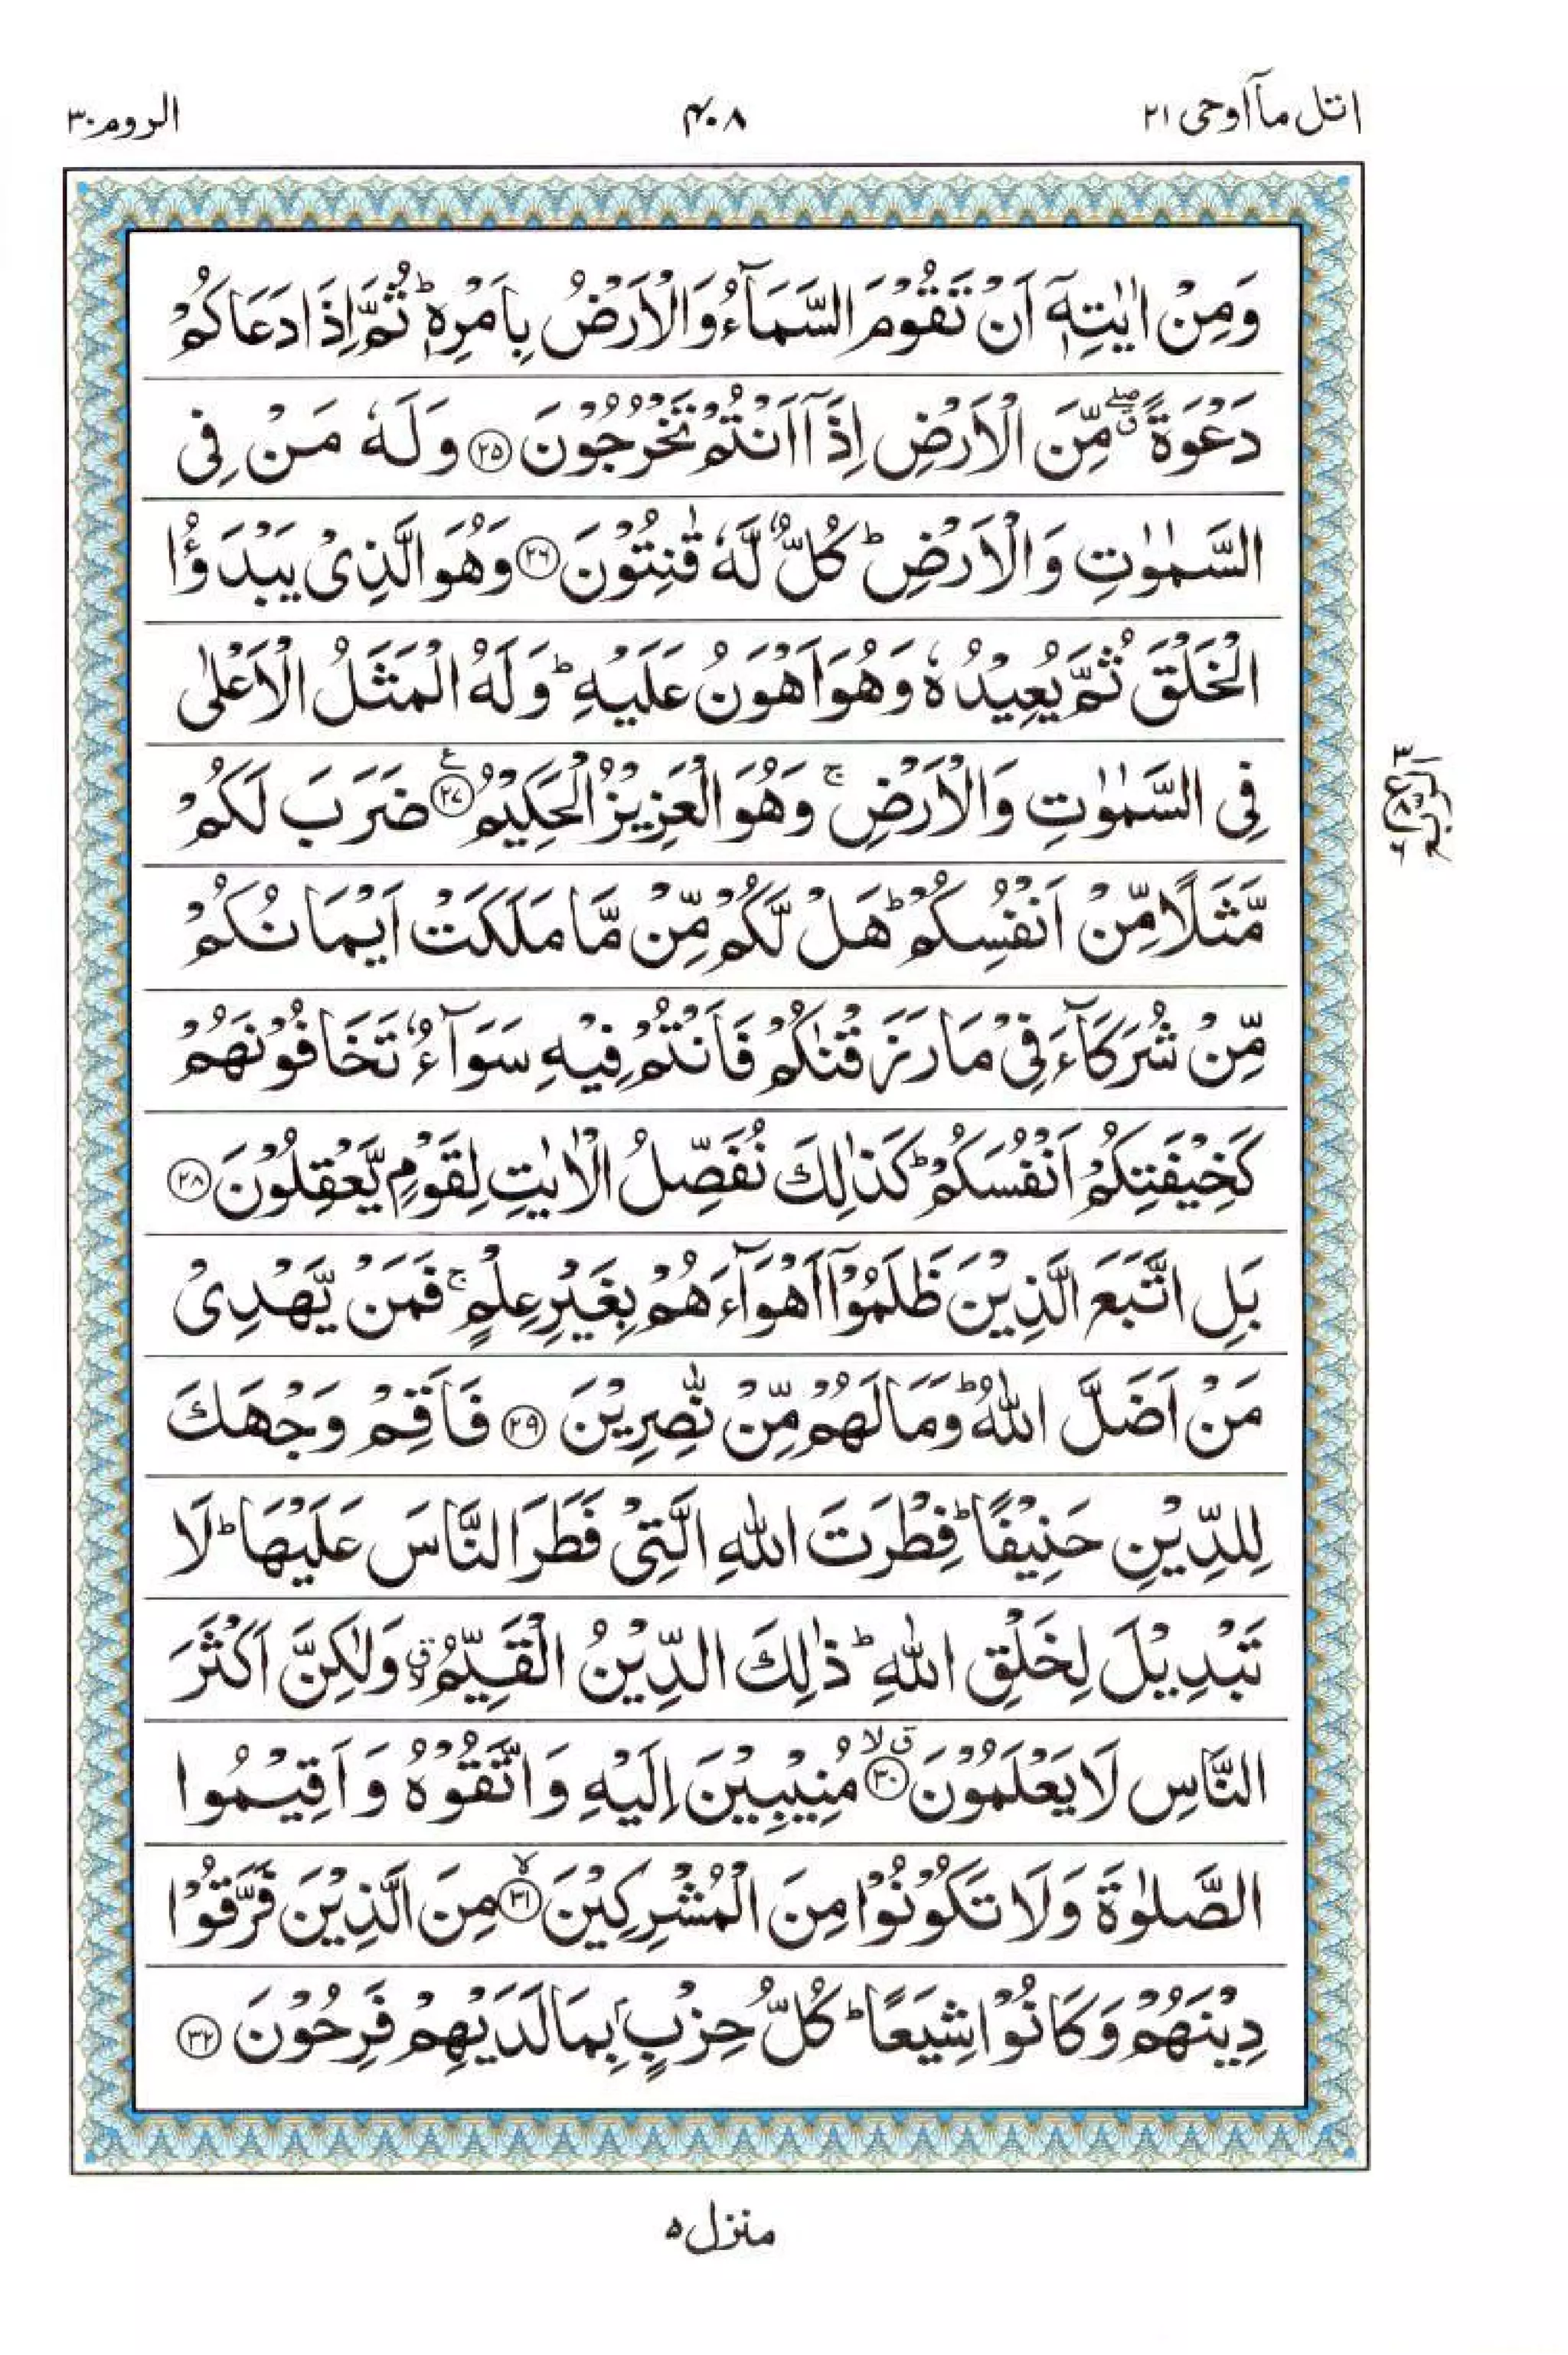 اتل مآ اوحی ۲۱
۴۰۸
الروم ۳۰
وَمِنْ اٰيٰتِهٖٓ اَنْ تَقُوْمَ السَّمَآءُ وَالْاَرْضُ بِاَمْرِهٖ ؕ ثُمَّ اِذَا دَعَاكُمْ
دَعْوَةً ۖۗ مِّنَ الْاَرْضِ اِذَآ اَنْتُمْ تَخْرُجُوْنَ ﴿۲۵﴾ وَلَهٗ مَنْ فِی
السَّمٰوٰتِ وَالْاَرْضِ ؕ كُلٌّ لَّهٗ قٰنِتُوْنَ ﴿۲۶﴾ وَهُوَ الَّذِیْ يَبْدَؤُا
الْخَلْقَ ثُمَّ يُعِيْدُهٗ وَهُوَ اَهْوَنُ عَلَيْهِ ؕ وَلَهُ الْمَثَلُ الْاَعْلٰی
فِی السَّمٰوٰتِ وَالْاَرْضِ ۚ وَهُوَ الْعَزِيْزُ الْحَكِيْمُ ﴿۲۷﴾ ع ضَرَبَ لَكُمْ
مَّثَلًا مِّنْ اَنْفُسِكُمْ ؕ هَلْ لَّكُمْ مِّنْ مَّا مَلَكَتْ اَيْمَانُكُمْ
مِّنْ شُرَكَآءَ فِیْ مَا رَزَقْنٰكُمْ فَاَنْتُمْ فِيْهِ سَوَآءٌ تَخَافُوْنَهُمْ
كَخِيْفَتِكُمْ اَنْفُسَكُمْ ؕ كَذٰلِكَ نُفَصِّلُ الْاٰيٰتِ لِقَوْمٍ يَّعْقِلُوْنَ ﴿۲۸﴾
بَلِ اتَّبَعَ الَّذِيْنَ ظَلَمُوْٓا اَهْوَآءَهُمْ بِغَيْرِ عِلْمٍ ۚ فَمَنْ يَّهْدِیْ
مَنْ اَضَلَّ اللّٰهُ ؕ وَمَا لَهُمْ مِّنْ نّٰصِرِيْنَ ﴿۲۹﴾ فَاَقِمْ وَجْهَكَ
لِلدِّيْنِ حَنِيْفًا ؕ فِطْرَتَ اللّٰهِ الَّتِیْ فَطَرَ النَّاسَ عَلَيْهَا ؕ لَا
تَبْدِيْلَ لِخَلْقِ اللّٰهِ ؕ ذٰلِكَ الدِّيْنُ الْقَيِّمُ ۙۗ وَلٰكِنَّ اَكْثَرَ
النَّاسِ لَا يَعْلَمُوْنَ ﴿۳۰﴾ ۙۗ مُنِيْبِيْنَ اِلَيْهِ وَاتَّقُوْهُ وَاَقِيْمُوا
الصَّلٰوةَ وَلَا تَكُوْنُوْا مِنَ الْمُشْرِكِيْنَ ﴿۳۱﴾ ۙ مِنَ الَّذِيْنَ فَرَّقُوْا
دِيْنَهُمْ وَكَانُوْا شِيَعًا ؕ كُلُّ حِزْبٍۭ بِمَا لَدَيْهِمْ فَرِحُوْنَ ﴿۳۲﴾
منزل ۵